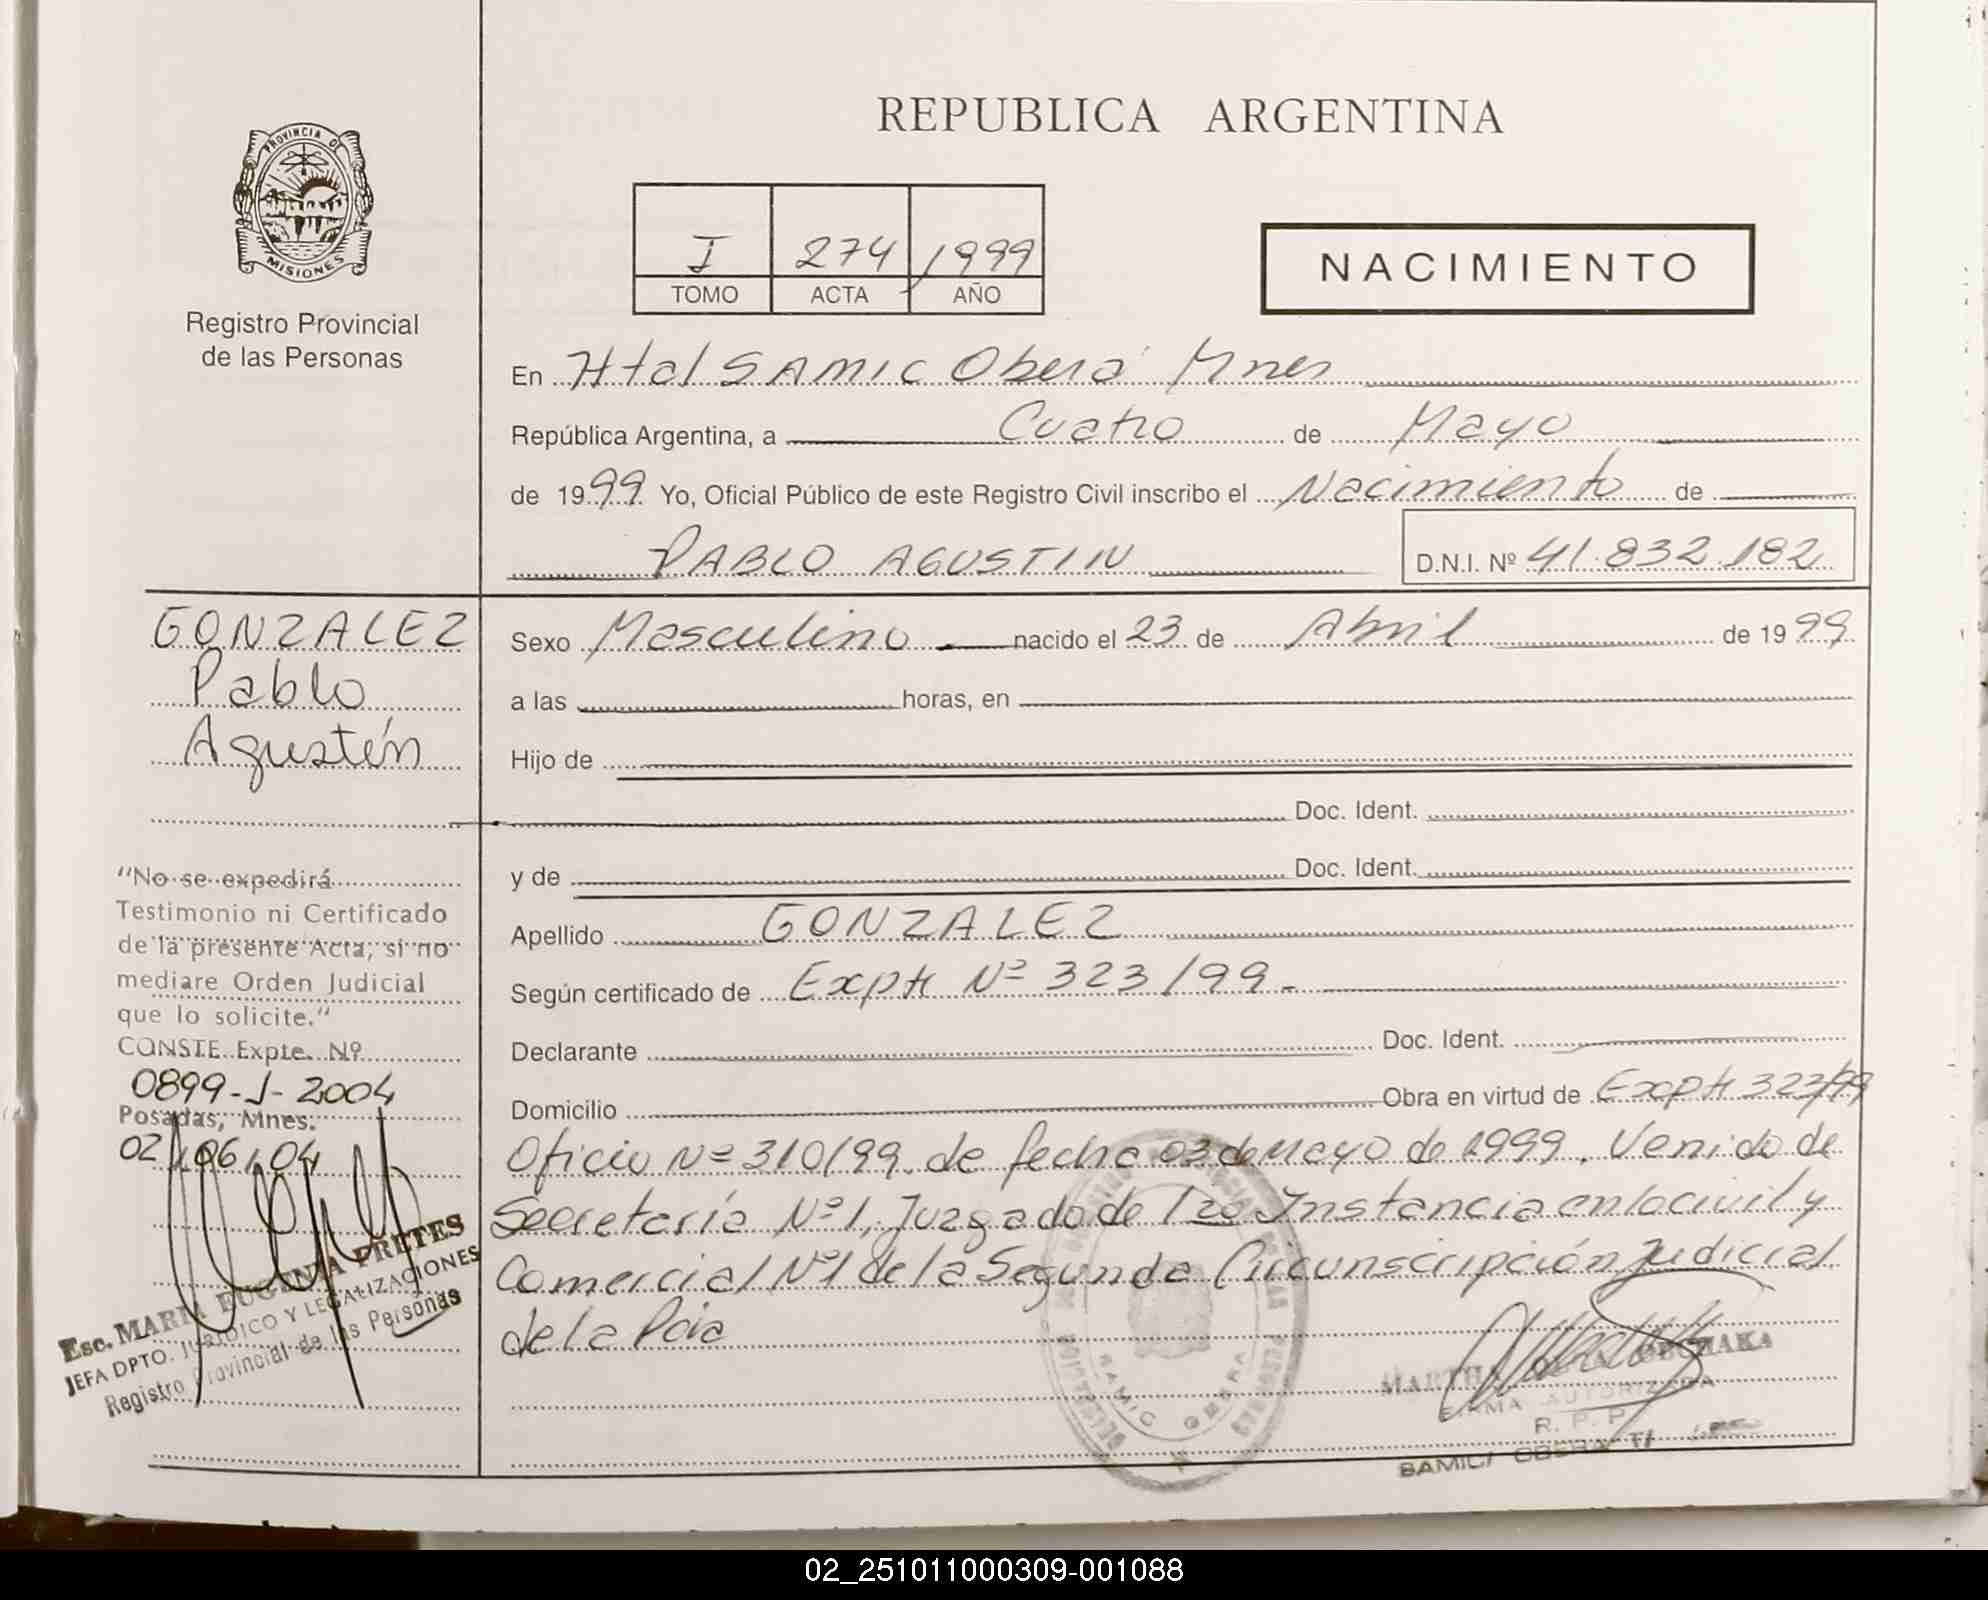 REPUBLICA ARGENTINA
PROVINCIA D
MISIONES
Registro Provincial
de las Personas
I 274 1999
TOMO ACTA AÑO
NACIMIENTO
En Htal SAMIC Oberá Mnes
República Argentina, a Cuatro de Mayo
de 1999 Yo, Oficial Público de este Registro Civil inscribo el Nacimiento de
PABLO AGUSTIN D.N.I. Nº 41.832.182
GONZALEZ
Pablo
Agustín
Sexo Masculino nacido el 23 de Abril de 1999
a las horas, en
Hijo de
Doc. Ident.
y de Doc. Ident.
Apellido GONZALEZ
Según certificado de Expte Nº 323/99.
Declarante Doc. Ident.
Domicilio Obra en virtud de Expte 323/99
Oficio Nº 310/99. de fecha 03 de Mayo de 1999. Venido de
Secretaría Nº1, Juzgado de 1ra Instancia en lo civil y
Comercial Nº1 de la Segunda Circunscripción Judicial
de la Pcia
"No se expedirá
Testimonio ni Certificado
de la presente Acta, si no
mediare Orden Judicial
que lo solicite."
CONSTE Expte. Nº
0899-J-2004
Posadas, Mnes.
02/06/04
Esc. MARIA EUGENIA PRETES
JEFA DPTO. JURIDICO Y LEGALIZACIONES
Registro Provincial de las Personas
SAMIC OBERA
FIRMA AUTORIZADA
R. P. P.
SAMIC/ OBERA
02_251011000309-001088